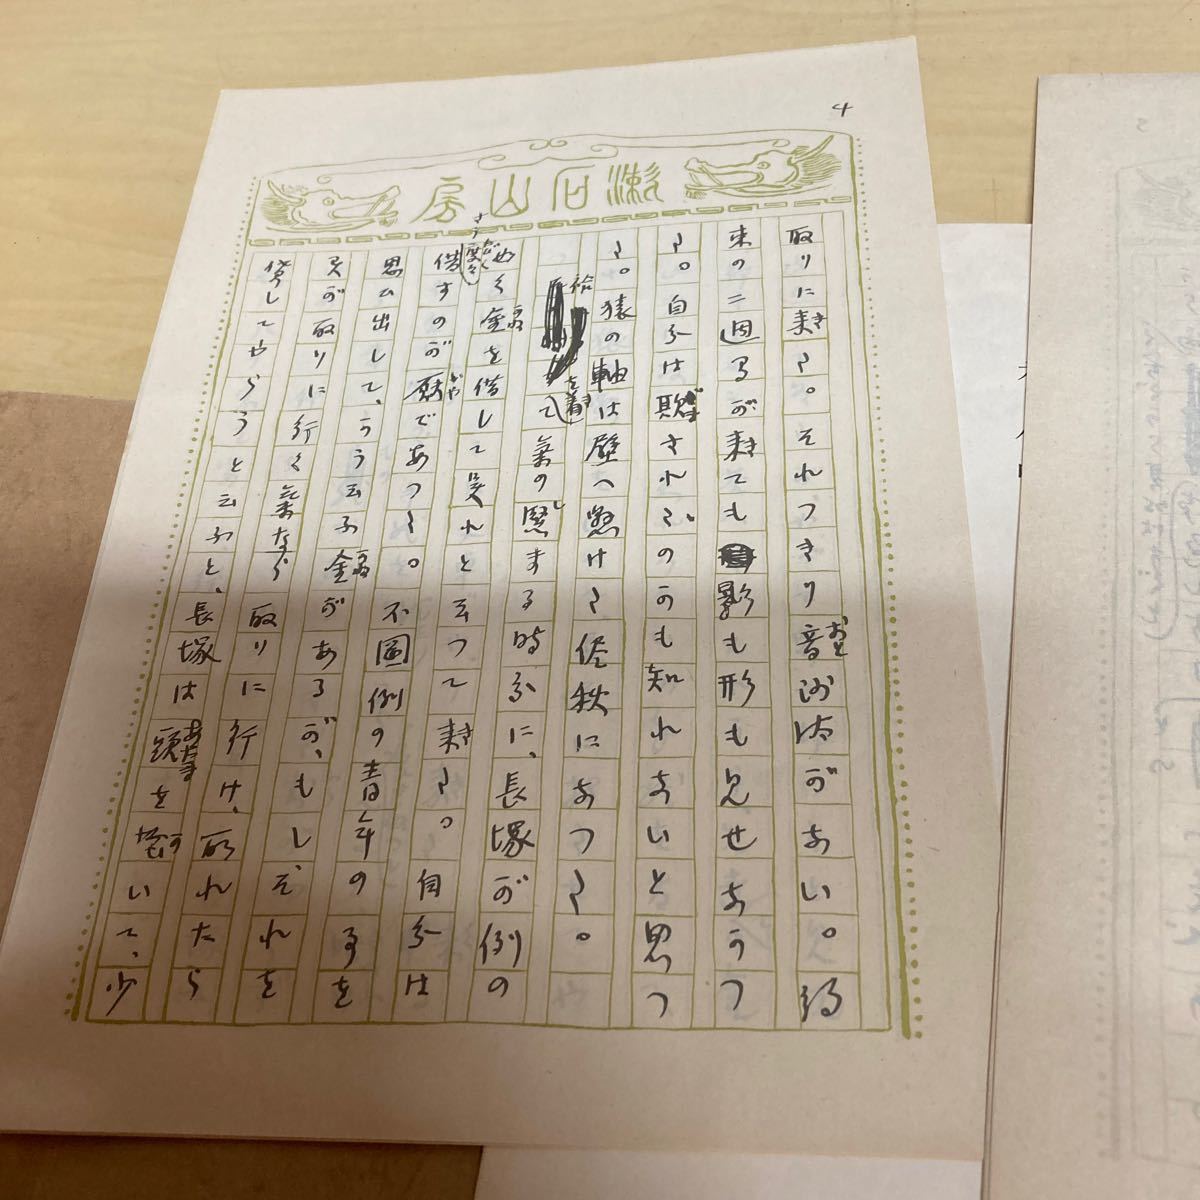 4
漱石山房
取りに来た。それつきり音沙汰がない。約
束の二週間が来ても影も形も見せなかつ
た。自分は欺されたのかも知れないと思つ
た。猿の軸は壁へ懸けた儘秋になつた。
袷を着て気の緊まる時分に、長塚が例の
如く金を借して呉れと云つて来た。自分は
さう度々借すのが厭であつた。不図例の青年の事を
思ひ出して、かう云ふ金があるが、もし、それを
君が取りに行く気なら取りに行け、取れたら
貸してやらうと云ふと、長塚は頭を掻いて、少